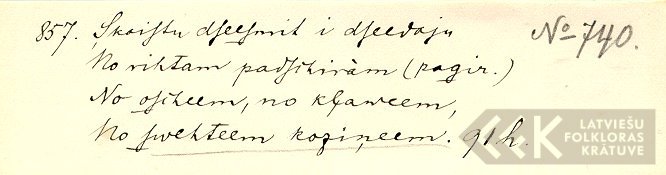 857. Skaistu dseesmit i dseedaju No 740.
No rihtam padschiràm (pagir.)
No oscheem, no kļaweem,
No swehteem koziņeem. 91 h.
LATVIEŠU
FOLKLORAS
KRĀTUVE